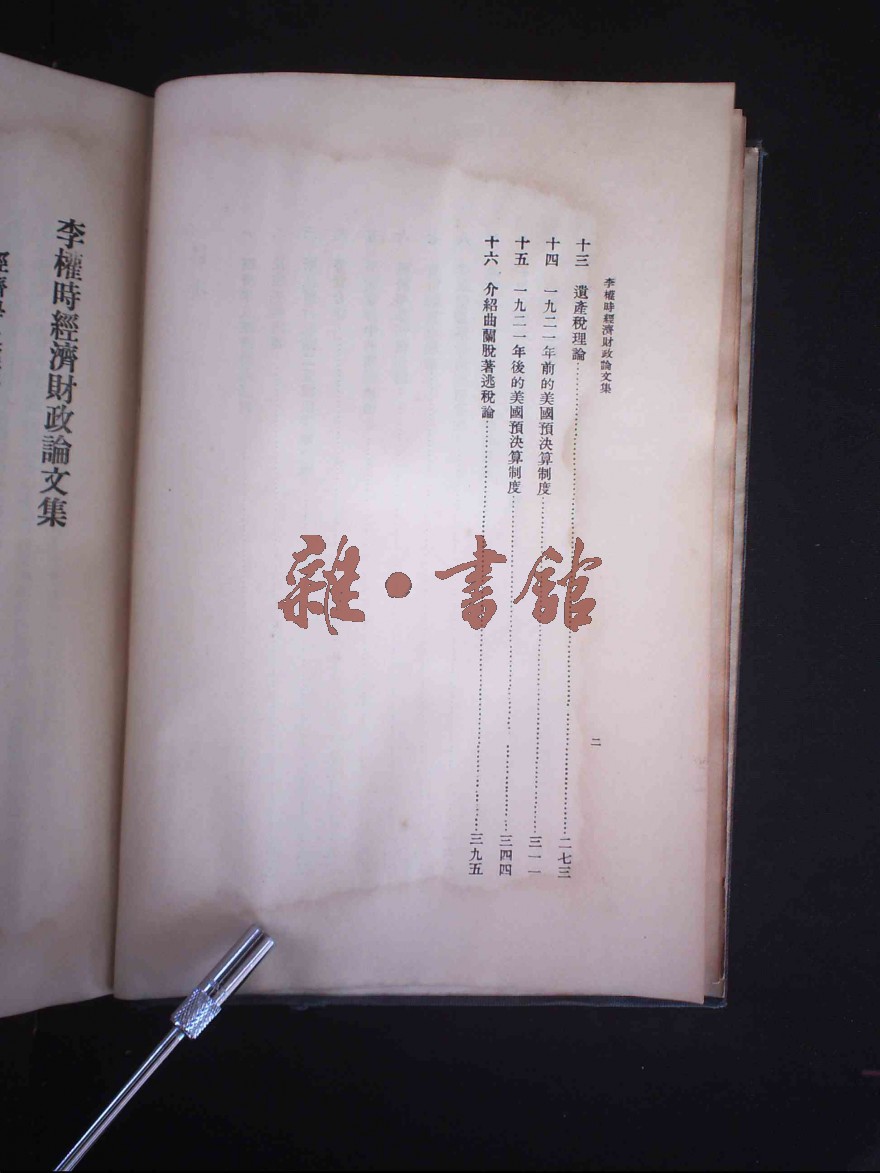 李權時經濟財政論文集
二
十三　遺產稅理論……二七三
十四　一九二一年前的美國預決算制度……三一一
十五　一九二一年後的美國預決算制度……三四四
十六　介紹曲蘭脫著逃稅論……三九五
李權時經濟財政論文集
雜•書館